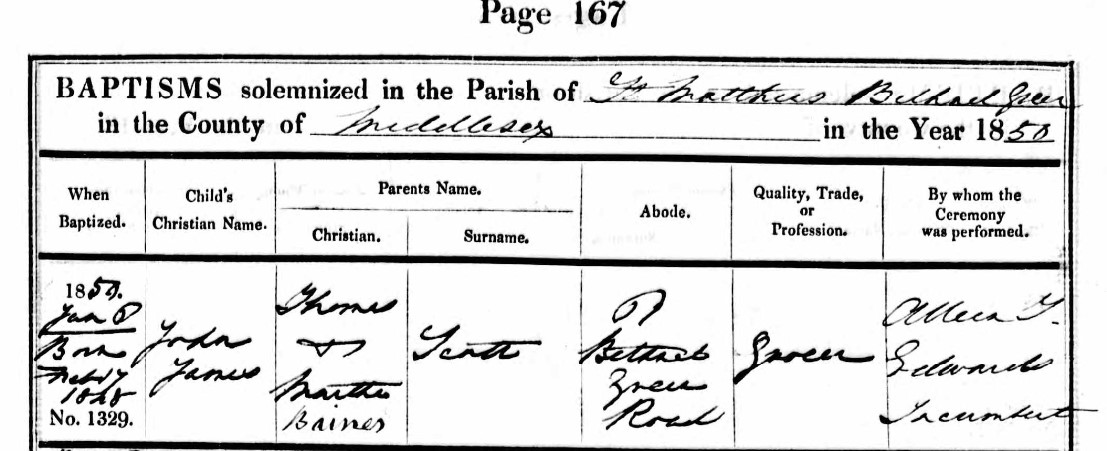 Page 167
BAPTISMS solemnized in the Parish of St Matthews Bethnal Green
in the County of Middlesex in the Year 1850
When Baptized.
Child's Christian Name.
Parents Name.
Christian.
Surname.
Abode.
Quality, Trade, or Profession.
By whom the Ceremony was performed.
1850.
Jan
Born
Feb 17
1848
No. 1329.
John
James
Thomas
+
Martha
Baines
Scott
Bethnal
Green
Road
Grocer
Edwards
Incumbent